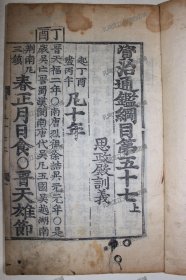 資治通鑑綱目第五十七上
思政殿訓義
起丁酉
盡丙午
凡十年
丁酉
晉天福二年○南唐烈祖徐誥昇元元年○是
歲吳亡晉蜀漢閩南唐代吳凡五國吳越湖南
荆南凡
三鎮
春正月日食○晉天雄節